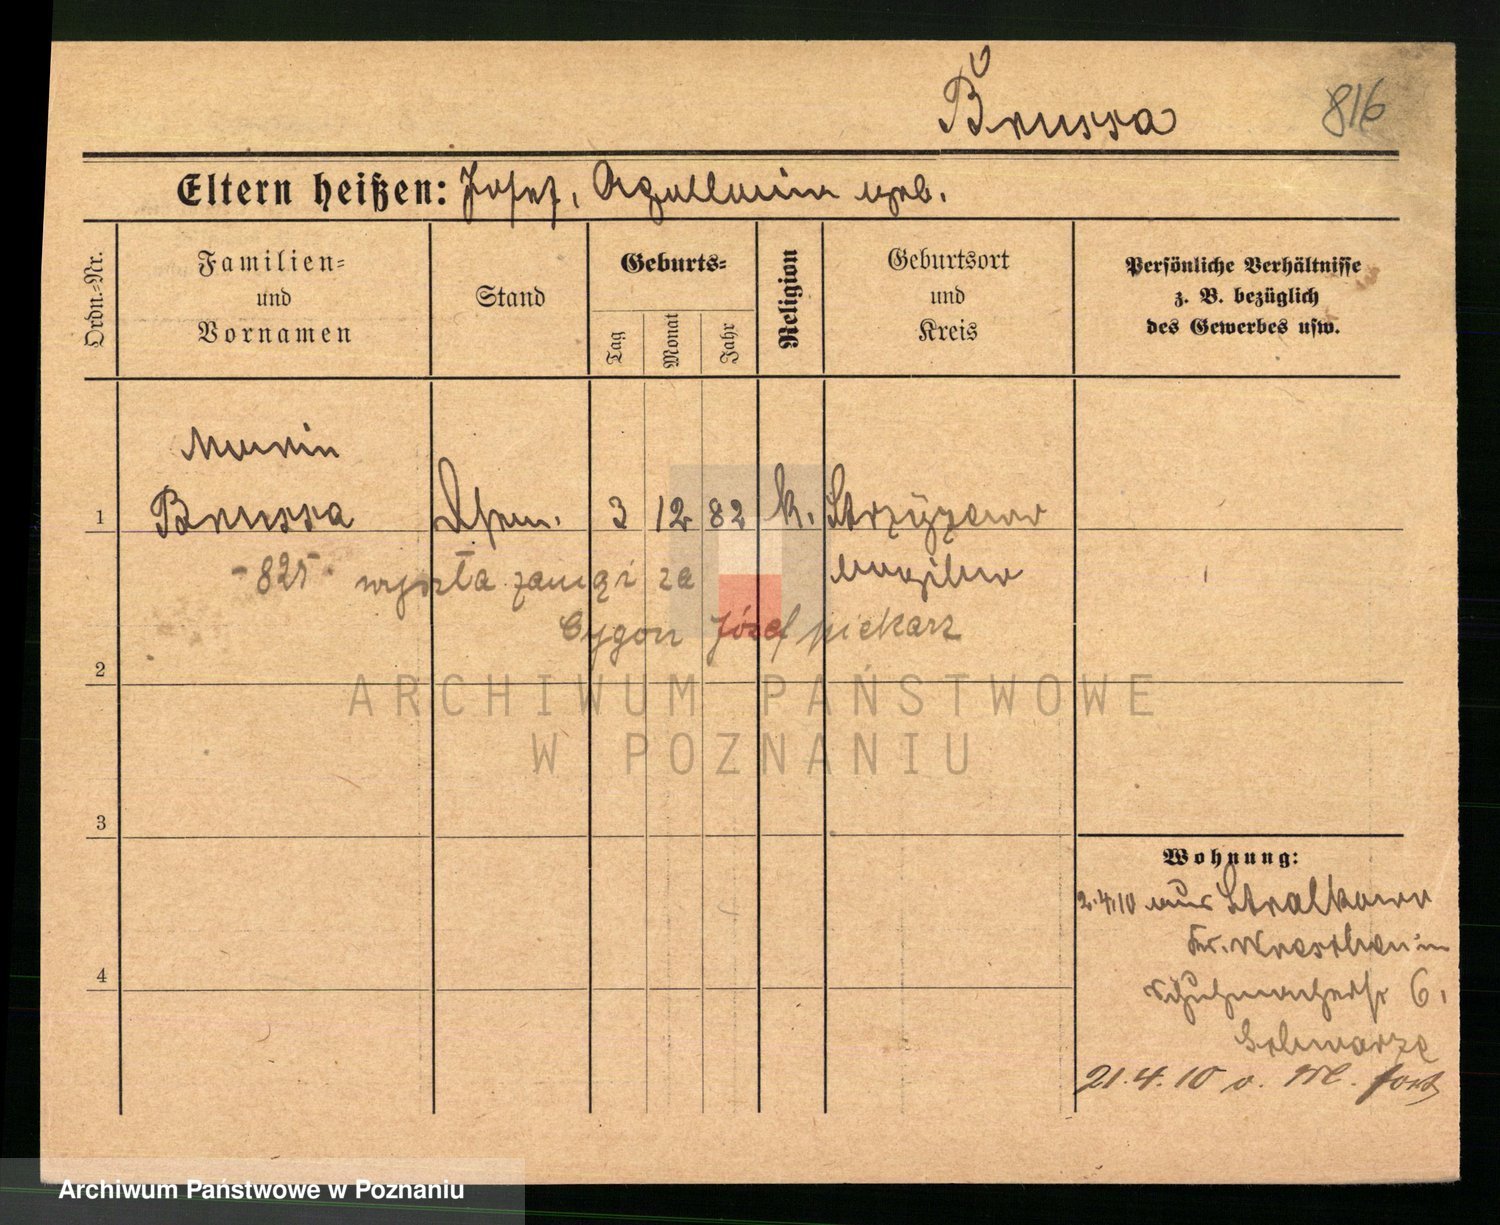 Brussa
816
Eltern heißen: Josef, Apollonia geb.
Ordn.=Nr.
Familien=
und
Vornamen
Stand
Geburts=
Tag
Monat
Jahr
Religion
Geburtsort
und
Kreis
Persönliche Verhältnisse
z. B. bezüglich
des Gewerbes usw.
Maria
1 Brussa 3 12 82 k. Strzyżewo
-825- wyszła zamąż za
Cygon Józef piekarz
2
ARCHIWUM PAŃSTWOWE
W POZNANIU
3
Wohnung:
2.4.10 aus Stralkowo
Kr. Wreschen in
4
Schuhmacherstr 6,
21.4.10 o. M. fort
Archiwum Państwowe w Poznaniu